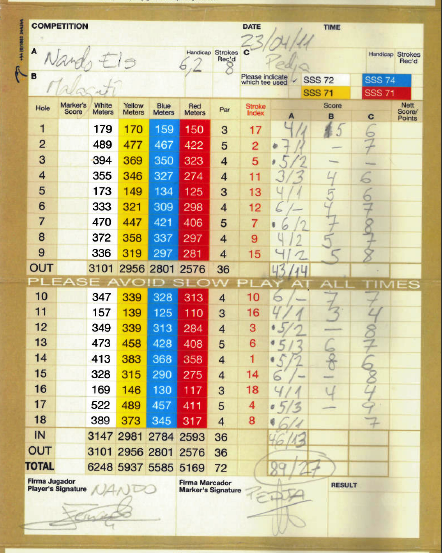 COMPETITION DATE TIME
23/04/11
A Nando Els Handicap Strokes Rec'd C Pedja Handicap Strokes Rec'd
6,2 8
B Please indicate which tee used SSS 72 SSS 74
SSS 71 SSS 71
Hole Marker's Score White Meters Yellow Meters Blue Meters Red Meters Par Stroke Index Score A B C Nett Score/Points
1 179 170 159 150 3 17 4/1 5 6
2 489 477 467 422 5 2 7/1 – 7
3 394 369 350 323 4 5 •5/2 – –
4 355 346 327 274 4 11 3/3 4 6
5 173 149 134 125 3 13 4/1 5 6
6 333 321 309 298 4 12 6/– 4 7
7 470 447 421 406 5 7 •6/2 7 8
8 372 358 337 297 4 9 4/2 5 7
9 336 319 297 281 4 15 4/2 5 8
OUT 3101 2956 2801 2576 36 43/14
PLEASE AVOID SLOW PLAY AT ALL TIMES
10 347 339 328 313 4 10 6/– 7 7
11 157 139 125 110 3 16 4/1 3 4
12 349 339 313 284 4 3 •5/2 – 8
13 473 458 428 408 5 6 •5/3 6 7
14 413 383 368 358 4 1 •5/2 8 6
15 328 315 290 275 4 14 6/– – 8
16 169 146 130 117 3 18 4/1 4 4
17 522 489 457 411 5 4 •5/3 – 9
18 389 373 345 317 4 8 •6/1 7
IN 3147 2981 2784 2593 36 46/13
OUT 3101 2956 2801 2576 36
TOTAL 6248 5937 5585 5169 72 89/27
Firma Jugador Player's Signature NANDO Firma Marcador Marker's Signature PEDJA RESULT